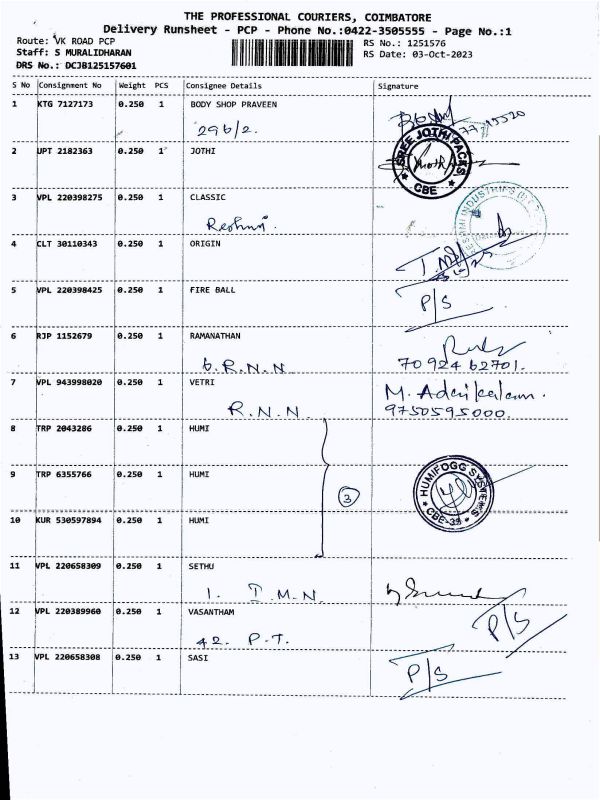 THE PROFESSIONAL COURIERS, COIMBATORE
Delivery Runsheet - PCP - Phone No.:0422-3505555 - Page No.:1
Route: VK ROAD PCP
RS No.: 1251576
Staff: S MURALIDHARAN
RS Date: 03-Oct-2023
DRS No.: DCJB125157601
S No Consignment No Weight PCS Consignee Details Signature
1 KTG 7127173 0.250 1 BODY SHOP PRAVEEN
296/2.
2 UPT 2182363 0.250 1 JOTHI
SREE JOTHI PACKS
CBE
3 VPL 220398275 0.250 1 CLASSIC
Reshmi.
4 CLT 30110343 0.250 1 ORIGIN
5 VPL 220398425 0.250 1 FIRE BALL
P/S
6 RJP 1152679 0.250 1 RAMANATHAN
6. R.N.N
7092462701.
7 VPL 943998020 0.250 1 VETRI
M. Adaikalam.
R.N.N.
9750595000.
8 TRP 2043286 0.250 1 HUMI
9 TRP 6355766 0.250 1 HUMI
3
HUMIFOGG SYSTEMS
CBE-39
10 KUR 530597894 0.250 1 HUMI
11 VPL 220658309 0.250 1 SETHU
1. I.M.N.
12 VPL 220389960 0.250 1 VASANTHAM
P/S
42. P.T.
13 VPL 220658308 0.250 1 SASI
P/S